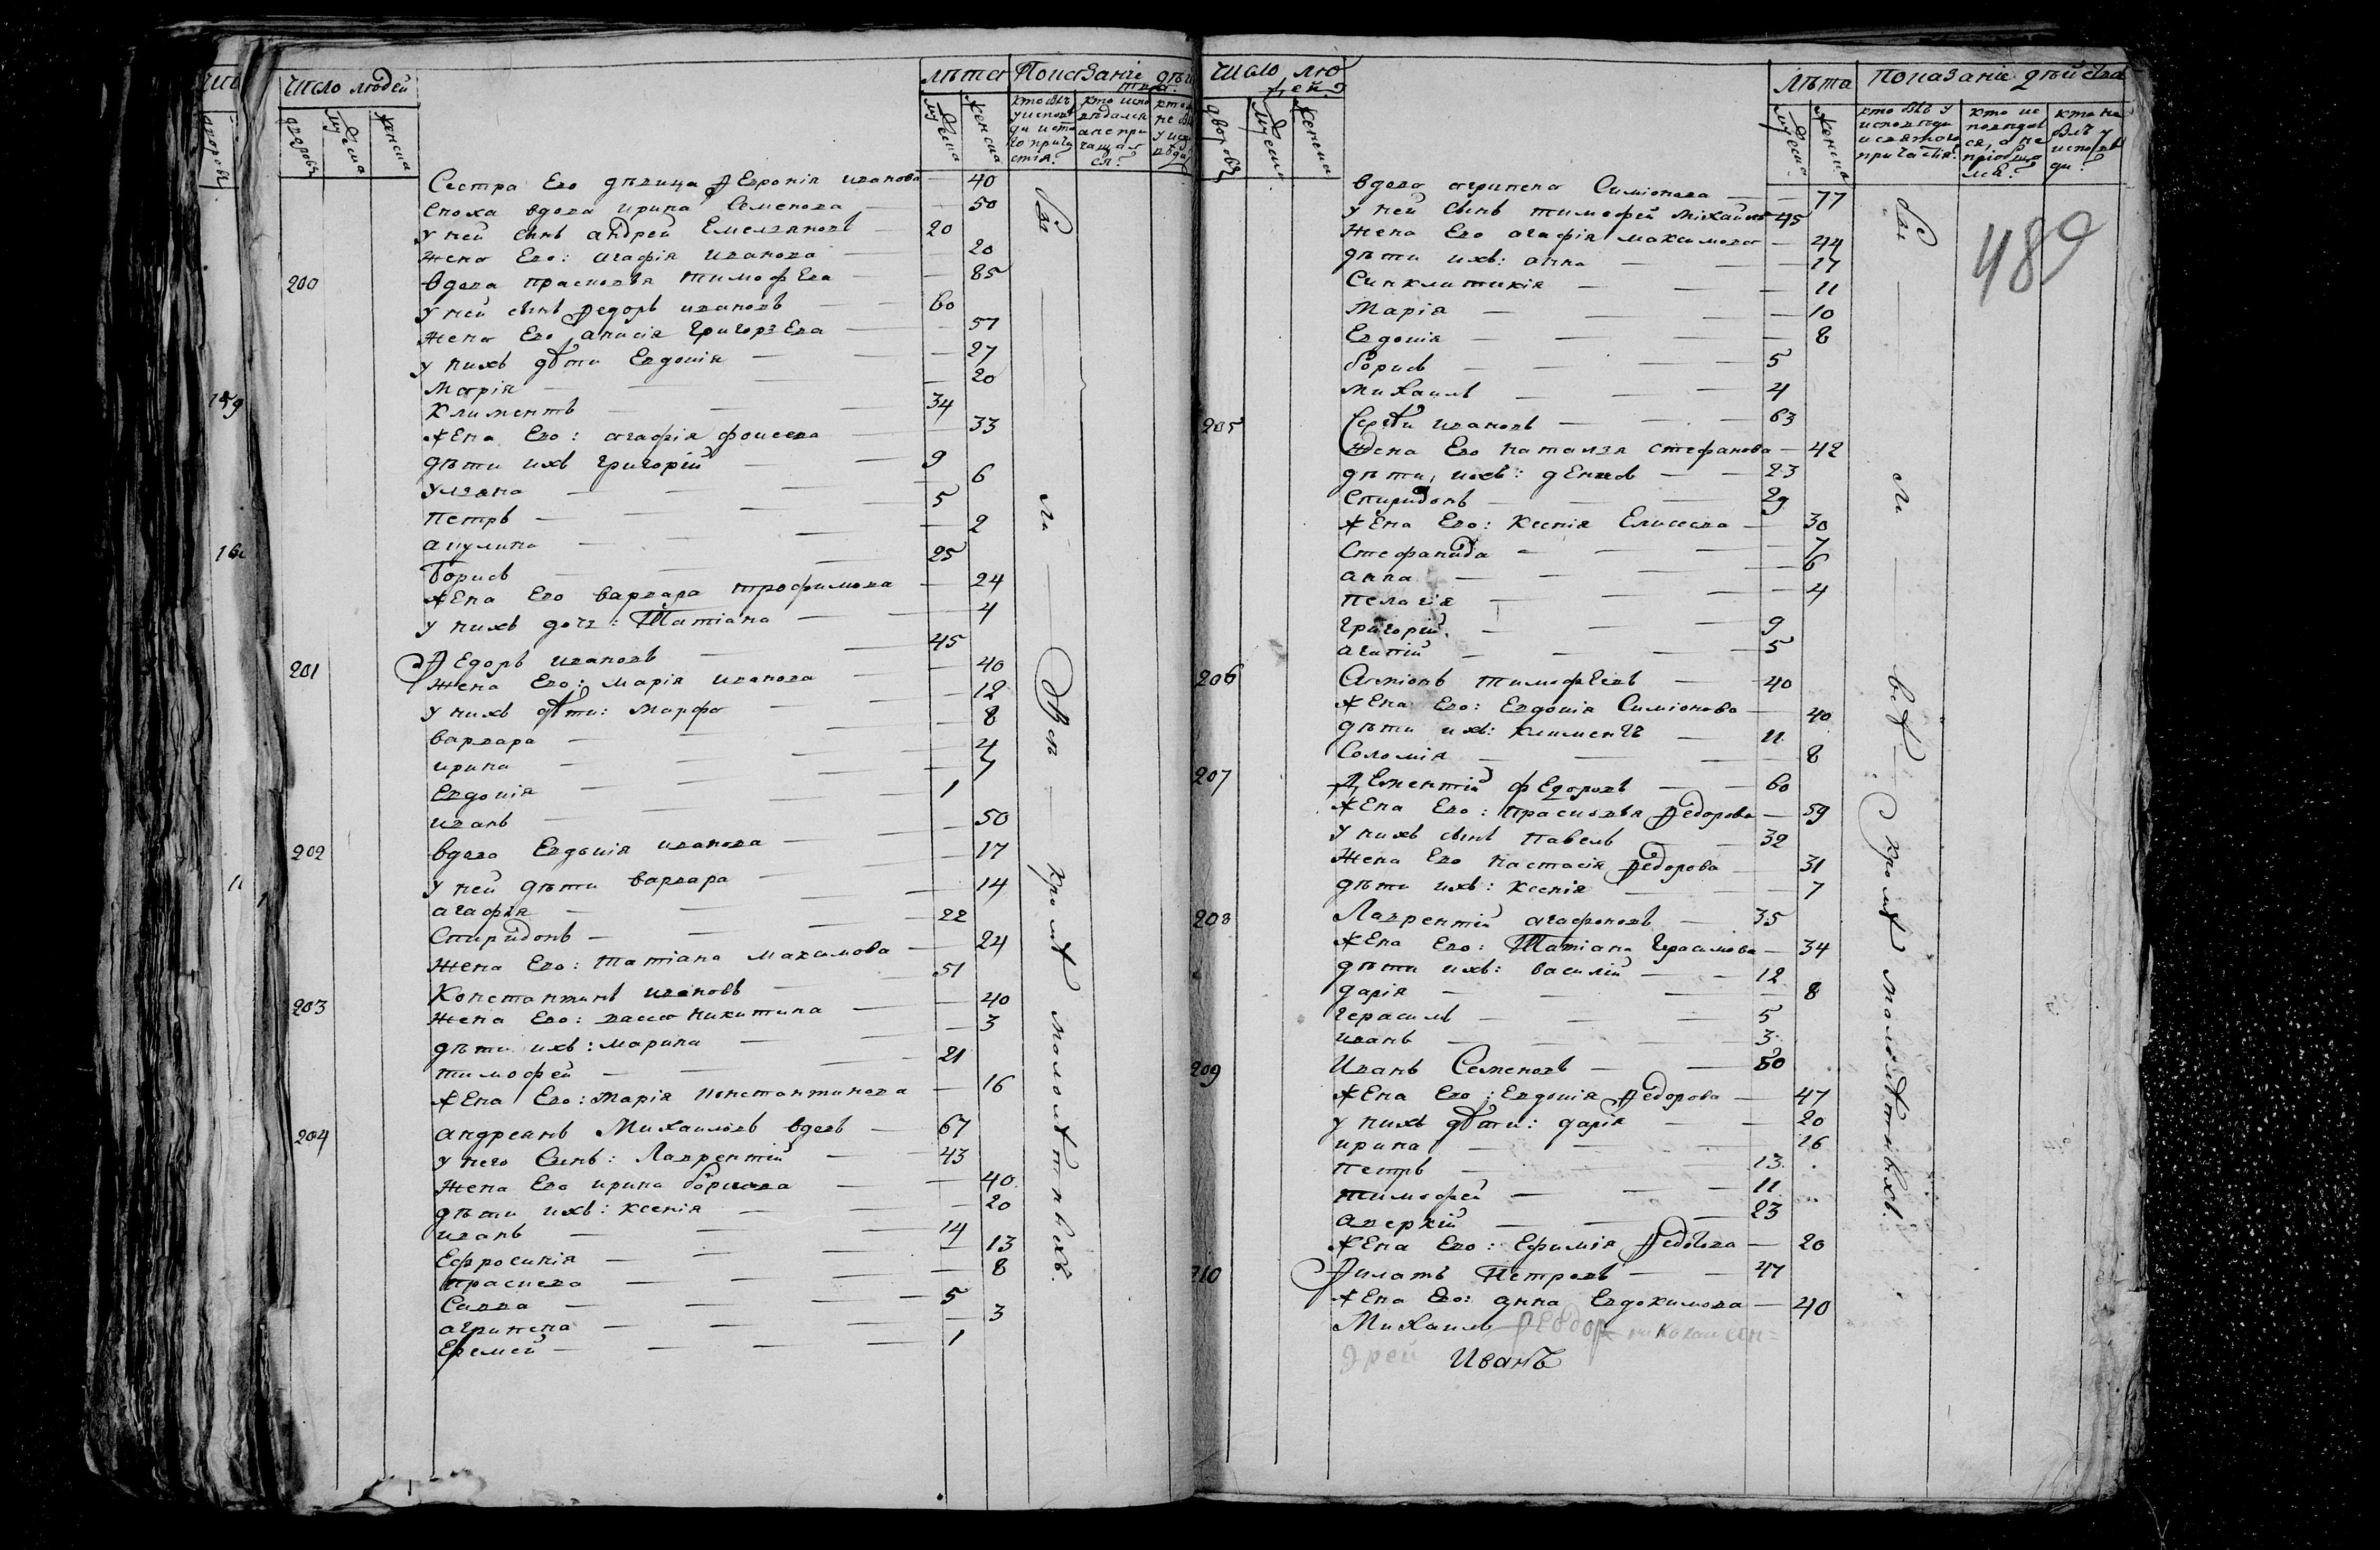 Число людей
лѣта Показанiе дѣйства.
дворовъ мужеска женска
мужеска женска
Сестра Его дѣвица Ѳевронiя иванова — 40
сноха вдова ирина Семенова — 50
у ней сынъ андрей Емельяновъ — 20
жена Его: агафiя иванова — 20
200 вдова прасковья тимофЕва — 85
у ней сынъ Ѳедоръ ивановъ — 60
жена Его анисiя григорьЕва — 57
у нихъ дѣти Евдокiя — 27
Марiя — 20
климентъ — 34
жЕна Его: агафiя фокеева — 33
дѣти ихъ григорiй — 9
ульяна — 6
петръ — 5
акулина — 2
борисъ — 25
жЕна Его варвара трофимова — 24
у нихъ дочь: Татiана — 4
201 Ѳедоръ ивановъ — 45
жена Его: марiя иванова — 40
у нихъ дѣти: марфа — 12
варвара — 8
ирина — 4
Евдокiя —
иванъ — 1
202 вдова Евдокiя иванова — 50
у ней дѣти варвара — 17
агафiя — 14
Спиридонъ — 22
жена Его: татiана максимова — 24
203 Константинъ ивановъ — 51
жена Его: васса никитина — 40
дѣти ихъ: марина — 3
тимофей — 21
жЕна Его: марiя константинова — 16
204 андреянъ Михаиловъ вдовъ — 67
у него Сынъ: Лаврентiй — 43
жена Его ирина борисова — 40
дѣти ихъ: ксенiя — 20
иванъ — 14
Ефросинiя — 13
прасковa — 8
Савва — 5
агрипена — 3
Еремей — 1
бы ли Всѣ кромѣ мололѣтныхъ.
Число людей
лѣта показанiе дѣйства
дворовъ мужеска женска
мужеска женска
489
вдова агрипена Симiонова — 77
у ней сынъ тимофей михайловъ 45
жена Его агафiя максимова — 44
дѣти ихъ: анна — 17
Синклитикiя — 11
Марiя — 10
Евдокiя — 8
борисъ — 5
михаилъ — 4
205 Сергѣй ивановъ — 63
жена Его наталья стефанова — 42
дѣти ихъ: дЕнисъ — 23
Спиридонъ — 29
жЕна Его: ксенiя Елисеева — 30
Стефанида — 7
анна — 6
пелагiя — 4
григорiй — 9
агапiй — 5
206 Симiонъ тимофѣевъ — 40
жЕна Его: Евдокiя Симiонова — 40
дѣти ихъ: климентъ — 11
Соломiя — 8
207 ДЕментiй фЕдоровъ — 60
жЕна Его: прасковья Ѳедорова — 59
у нихъ сынъ павелъ — 32
жена Его настасiя Ѳедорова — 31
дѣти ихъ: ксенiя — 7
208 Лаврентiй агафоновъ — 35
жЕна Его: Татiана Герасимова — 34
дѣти ихъ: василiй — 12
дарiя — 8
герасимъ — 5
иванъ — 3
209 Иванъ Семеновъ — 50
жЕна Его: Евдокiя Ѳедорова — 47
у нихъ дѣти: дарiя — 20
ирина — 16
петръ — 13
тимофей — 11
аверкiй — 23
жЕна Его: Ефимiя Ѳедотова — 20
210 Ѳилатъ Петровъ — 47
жЕна Его: анна Евдокимова — 40
Михаилъ Ѳеодор николай ан=
дрей Иванъ
бы ли всѣ кромѣ мололѣтныхъ.